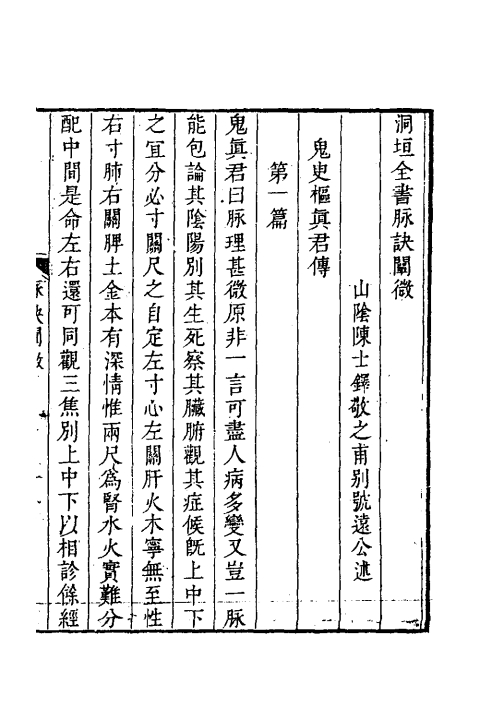 洞垣全書脉訣闡微
山陰陳士鐸敬之甫別號遠公述
鬼史樞眞君傳
第一篇
鬼眞君曰脉理甚微原非一言可盡人病多變又豈一脉
能包論其陰陽別其生死察其臟腑觀其症候旣上中下
之宜分必寸關尺之自定左寸心左關肝火木寧無至性
右寸肺右關脾土金本有深情惟兩尺爲腎水火實難分
配中間是命左右還可同觀三焦別上中下以相診餘經